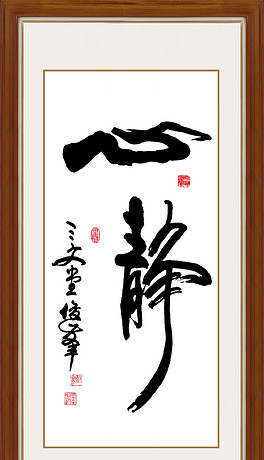 心静
三文堂俊峰